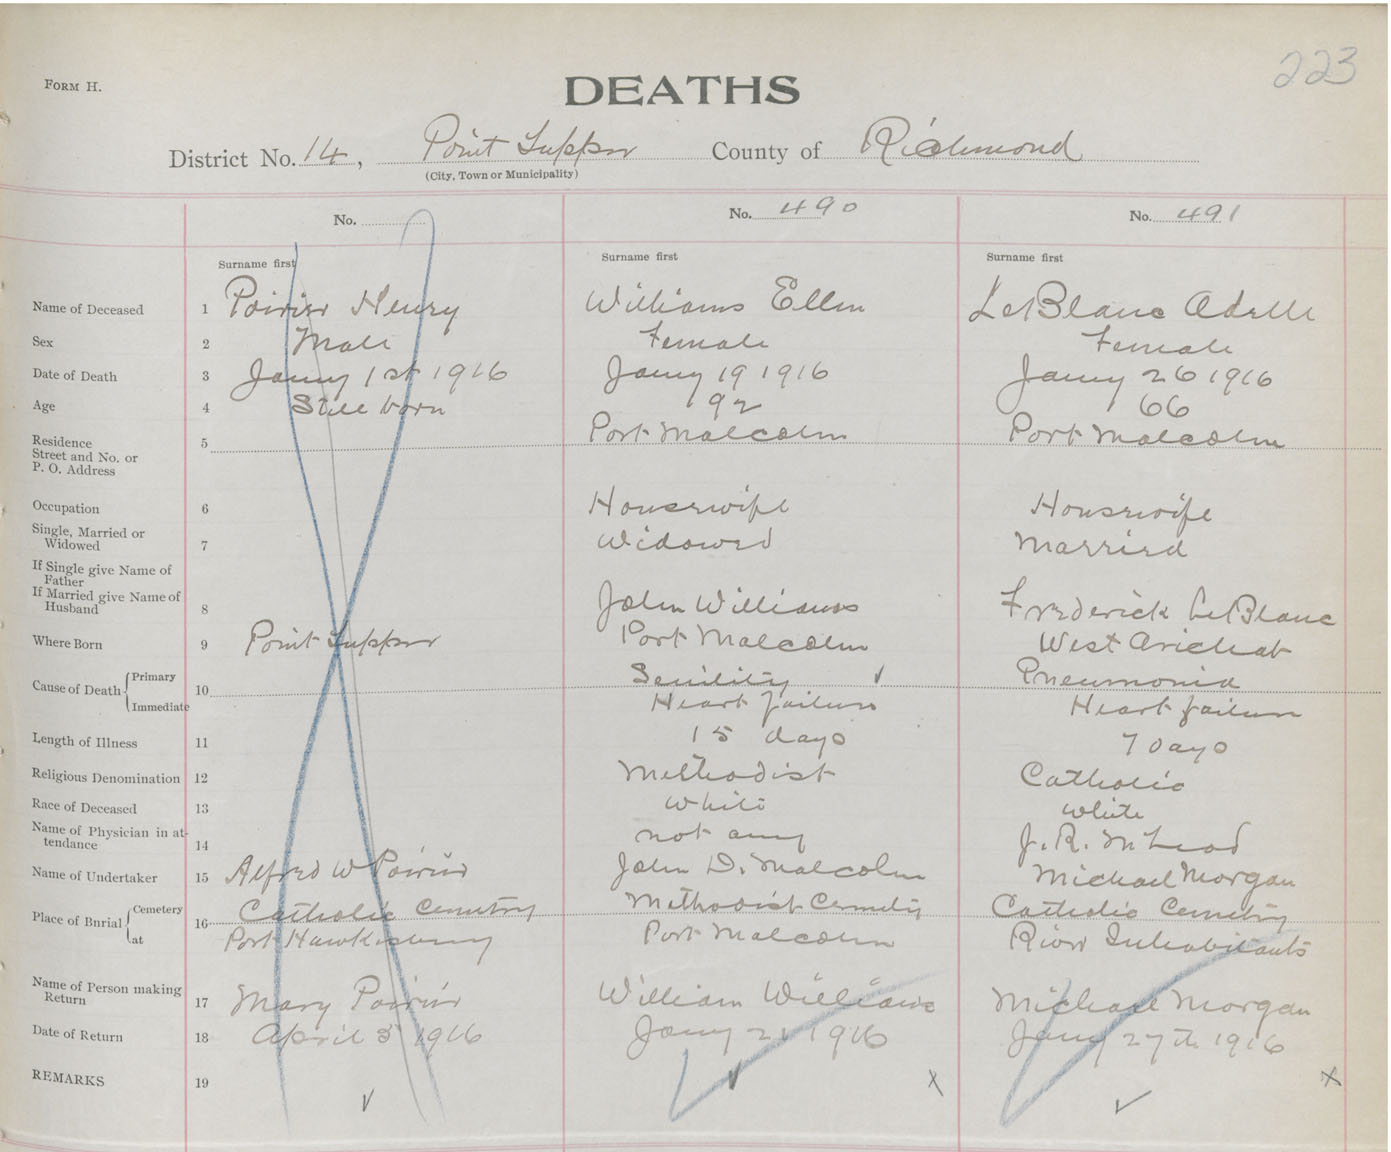 223
FORM H.
DEATHS
District No. 14, Point Tupper County of Richmond
(City, Town or Municipality)
No. No. 490 No. 491
Surname first Surname first Surname first
Name of Deceased 1 Poirier Henry Williams Ellen LeBlanc Adelle
Sex 2 Male Female Female
Date of Death 3 Jany 1st 1916 Jany 19 1916 Jany 26 1916
Age 4 Still born 92 66
Residence Street and No. or P. O. Address 5 Port Malcolm Port Malcolm
Occupation 6 Housewife Housewife
Single, Married or Widowed 7 Widowed Married
If Single give Name of Father
If Married give Name of Husband 8 John Williams Frederick LeBlanc
Where Born 9 Point Tupper Port Malcolm West Arichat
Cause of Death Primary 10 Senility Pneumonia
Immediate Heart failure Heart failure
Length of Illness 11 15 days 7 days
Religious Denomination 12 Methodist Catholic
Race of Deceased 13 White white
Name of Physician in attendance 14 not any J. R. McLeod
Name of Undertaker 15 Alfred W Poirier John D. Malcolm Michael Morgan
Place of Burial Cemetery 16 Catholic Cemetry Methodist Cemetry Catholic Cemetry
at Port Hawkesbury Port Malcolm River Inhabitants
Name of Person making Return 17 Mary Poirier William Williams Michael Morgan
Date of Return 18 April 3 1916 Jany 21 1916 Jany 27th 1916
REMARKS 19